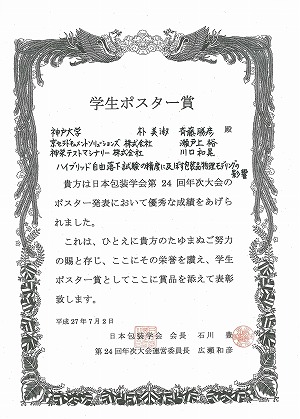 学生ポスター賞
神戸大学 朴美淑 斉藤勝彦 殿
京セラドキュメントソリューションズ株式会社 瀬戸上裕
神栄テストマシナリー株式会社 川口和晃
ハイブリッド自由落下試験の精度に及ぼす包装品物理モデリングの影響
貴方は日本包装学会第24回年次大会の
ポスター発表において優秀な成績をあげら
れました。
これは、ひとえに貴方のたゆまぬご努力
の賜と存じ、ここにその栄誉を讃え、学生
ポスター賞としてここに賞品を添えて表彰
致します。
平成27年7月2日
日本包装学会 会長 石川 豊
第24回年次大会運営委員長 広瀬和彦